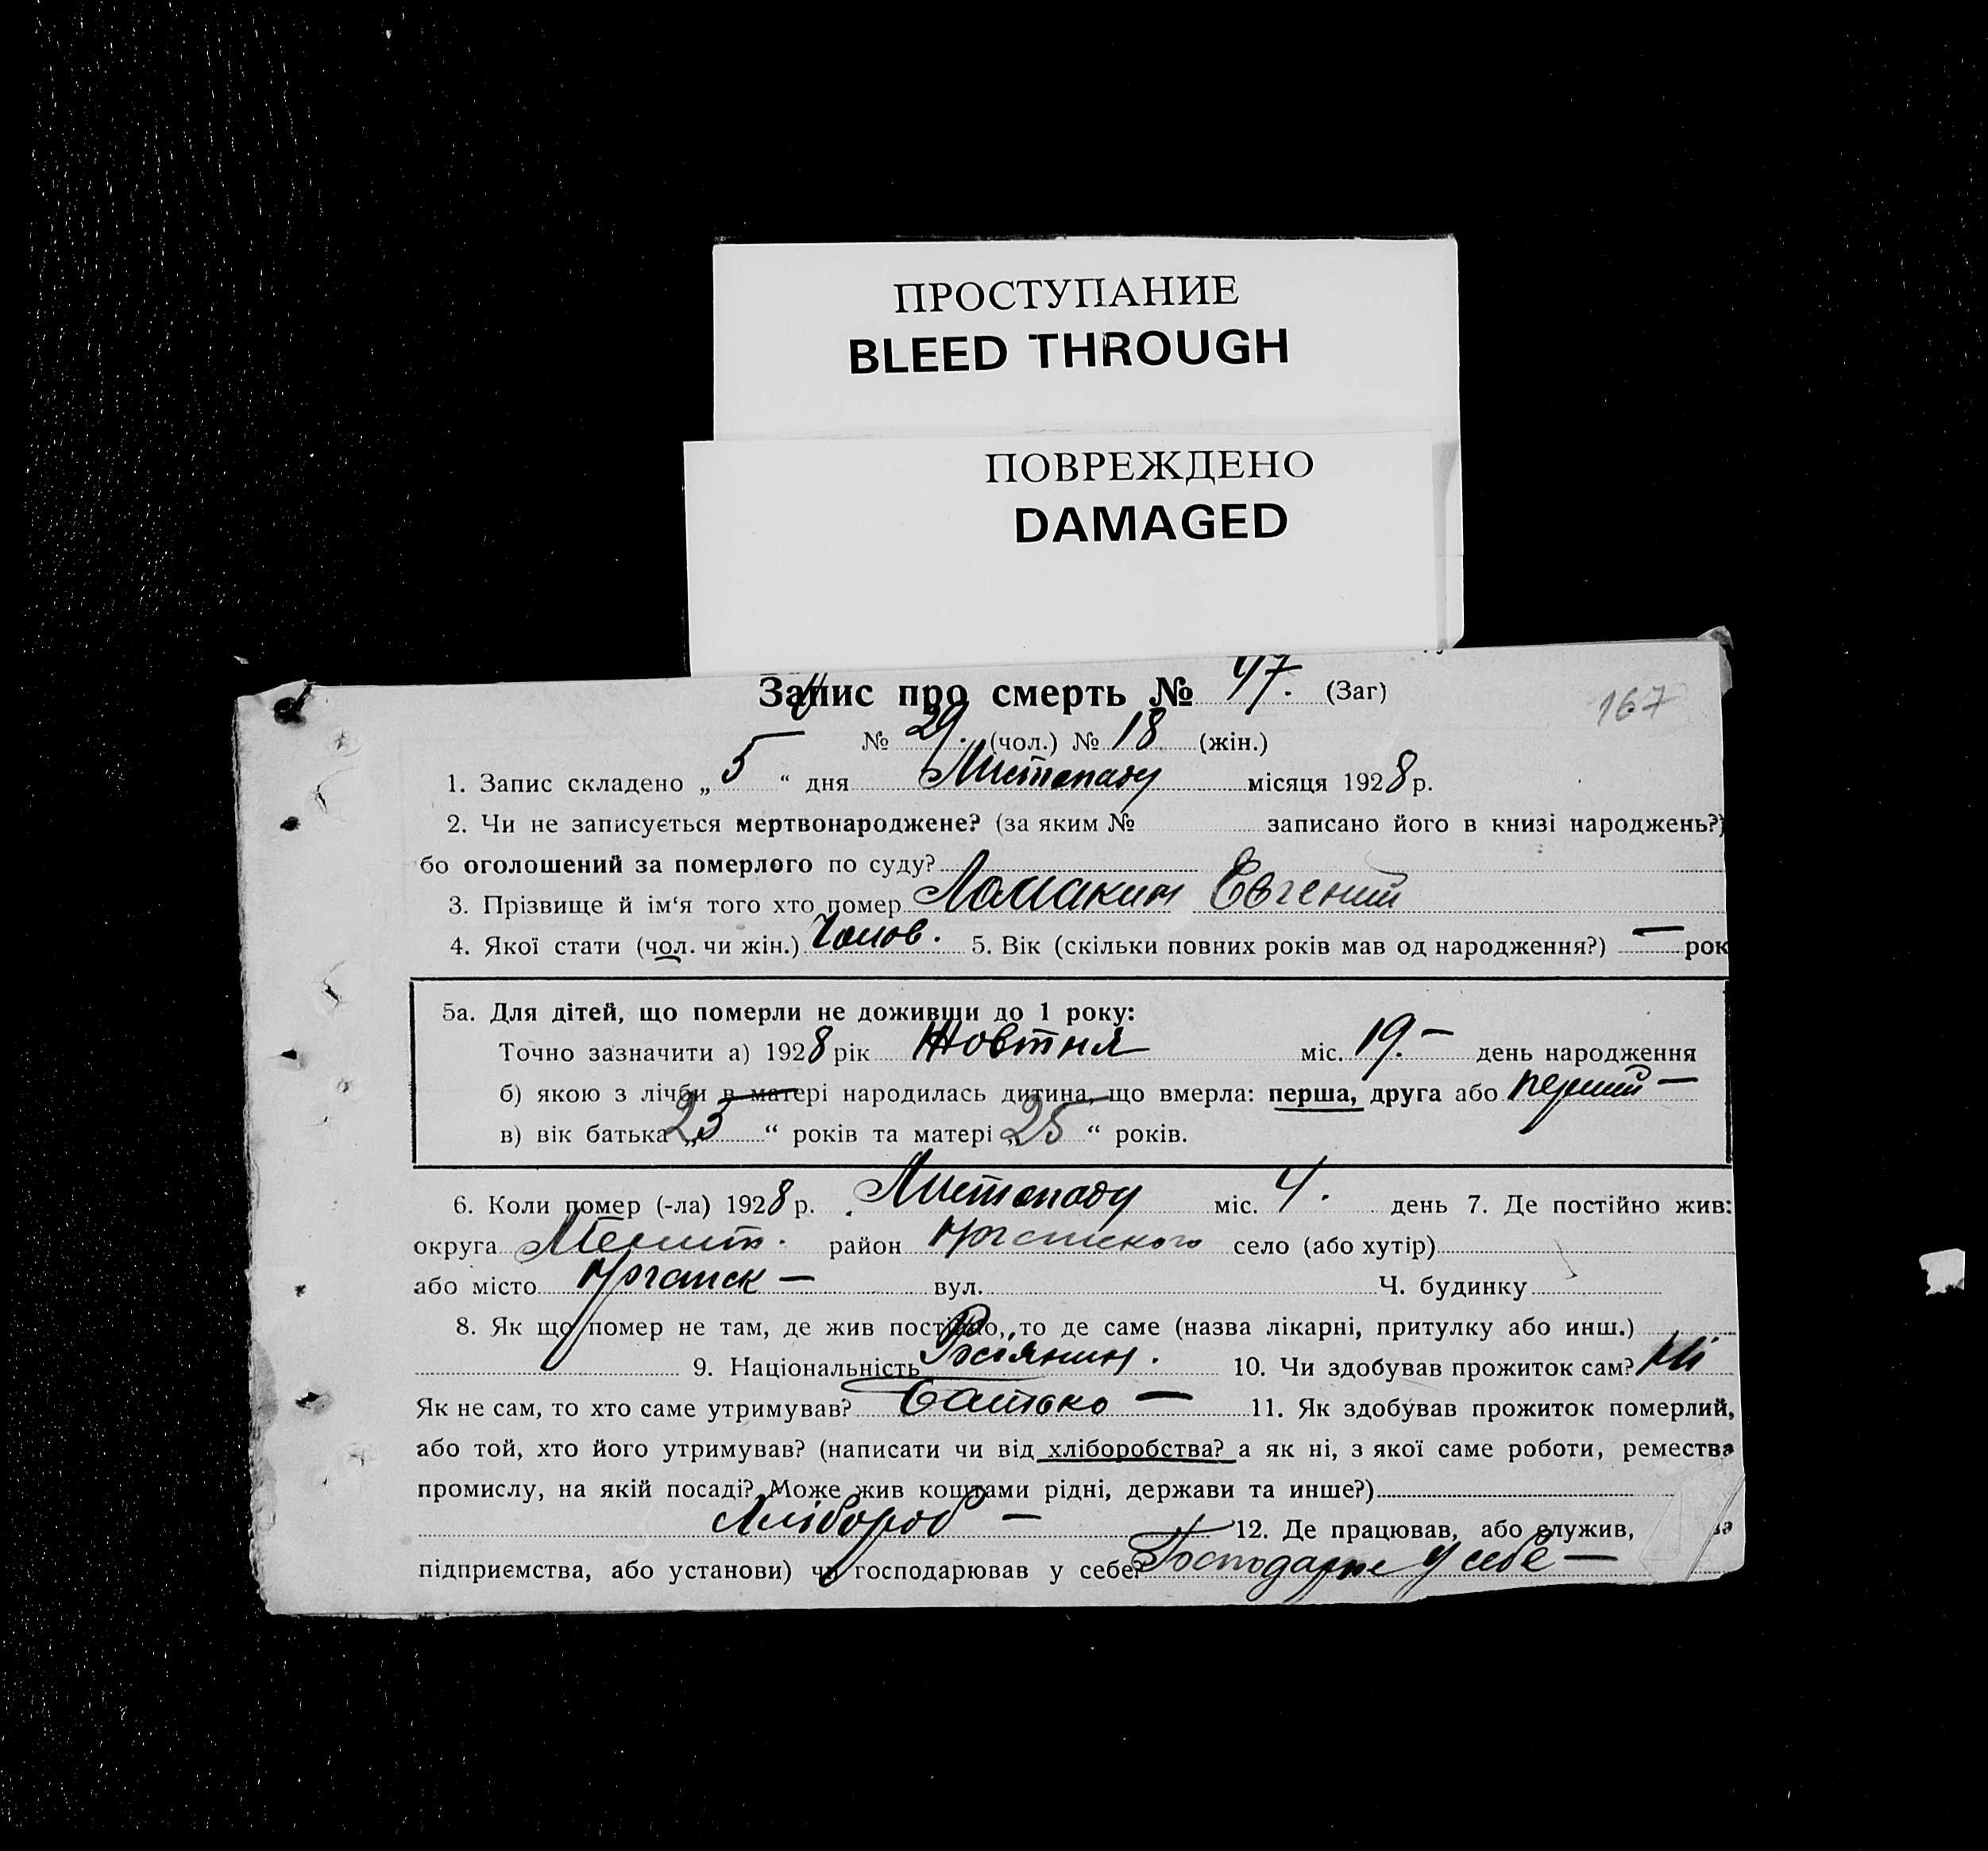 ПРОСТУПАНИЕ
BLEED THROUGH
ПОВРЕЖДЕНО
DAMAGED
Запис про смерть № 47. (Заг)
167
№ 29. (чол.) № 18 (жін.)
1. Запис складено „ 5 “ дня Листопаду місяця 1928 р.
2. Чи не записується мертвонароджене? (за яким № записано його в книзі народжень?)
бо оголошений за померлого по суду?
3. Прізвище й ім‘я того хто помер Ломакин Евгений
4. Якої стати (чол. чи жін.) Чолов. 5. Вік (скільки повних років мав од народження?) — рок
5а. Для дітей, що померли не доживши до 1 року:
Точно зазначити а) 1928 рік Жовтня міс. 19. — день народження
б) якою з лічби в матері народилась дитина, що вмерла: перша, друга або перший —
в) вік батька „ 25 “ років та матері „ 25 “ років.
6. Коли помер (-ла) 1928 р. Листопаду міс. 4. день 7. Де постійно жив:
округа район село (або хутір)
або місто вул. Ч. будинку
8. Як що помер не там, де жив постійно, то де саме (назва лікарні, притулку або инш.)
9. Національність Росіянин. 10. Чи здобував прожиток сам? Ні
Як не сам, то хто саме утримував? Батько — 11. Як здобував прожиток померлий,
або той, хто його утримував? (написати чи від хліборобства? а як ні, з якої саме роботи, ремества
промислу, на якій посаді? Може жив коштами рідні, держави та инше?)
Хлібороб — 12. Де працював, або служив,
підприємства, або установи) чи господарював у себе? Господарює у себе —